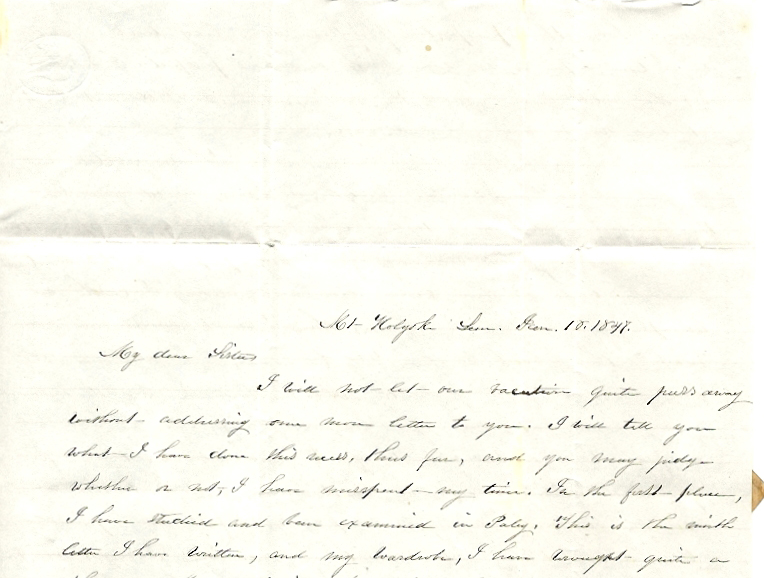 Mt Holyoke Sem. Jan. 10. 1847.
My dear Sisters
I will not let our vacation quite pass away
without addressing one more letter to you. I will tell you
what I have done this week, thus far, and you may judge
whether or not, I have misspent my time. In the first place,
I have studied and been examined in Paley. This is the ninth
letter I have written, and my wardrobe, I have wrought quite a